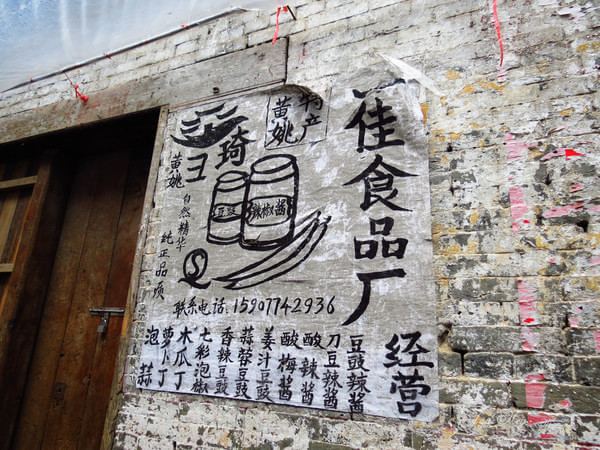 佳食品厂
黄姚
特产
琦
豆豉
辣椒酱
黄姚
自然精华
纯正品质
联系电话：15907742936
经营
豆豉辣酱
刀豆辣酱
酸辣酱
酸梅酱
姜汁豆豉
蒜蓉豆豉
香辣豆豉
七彩泡椒
木瓜丁
萝卜丁
泡蒜